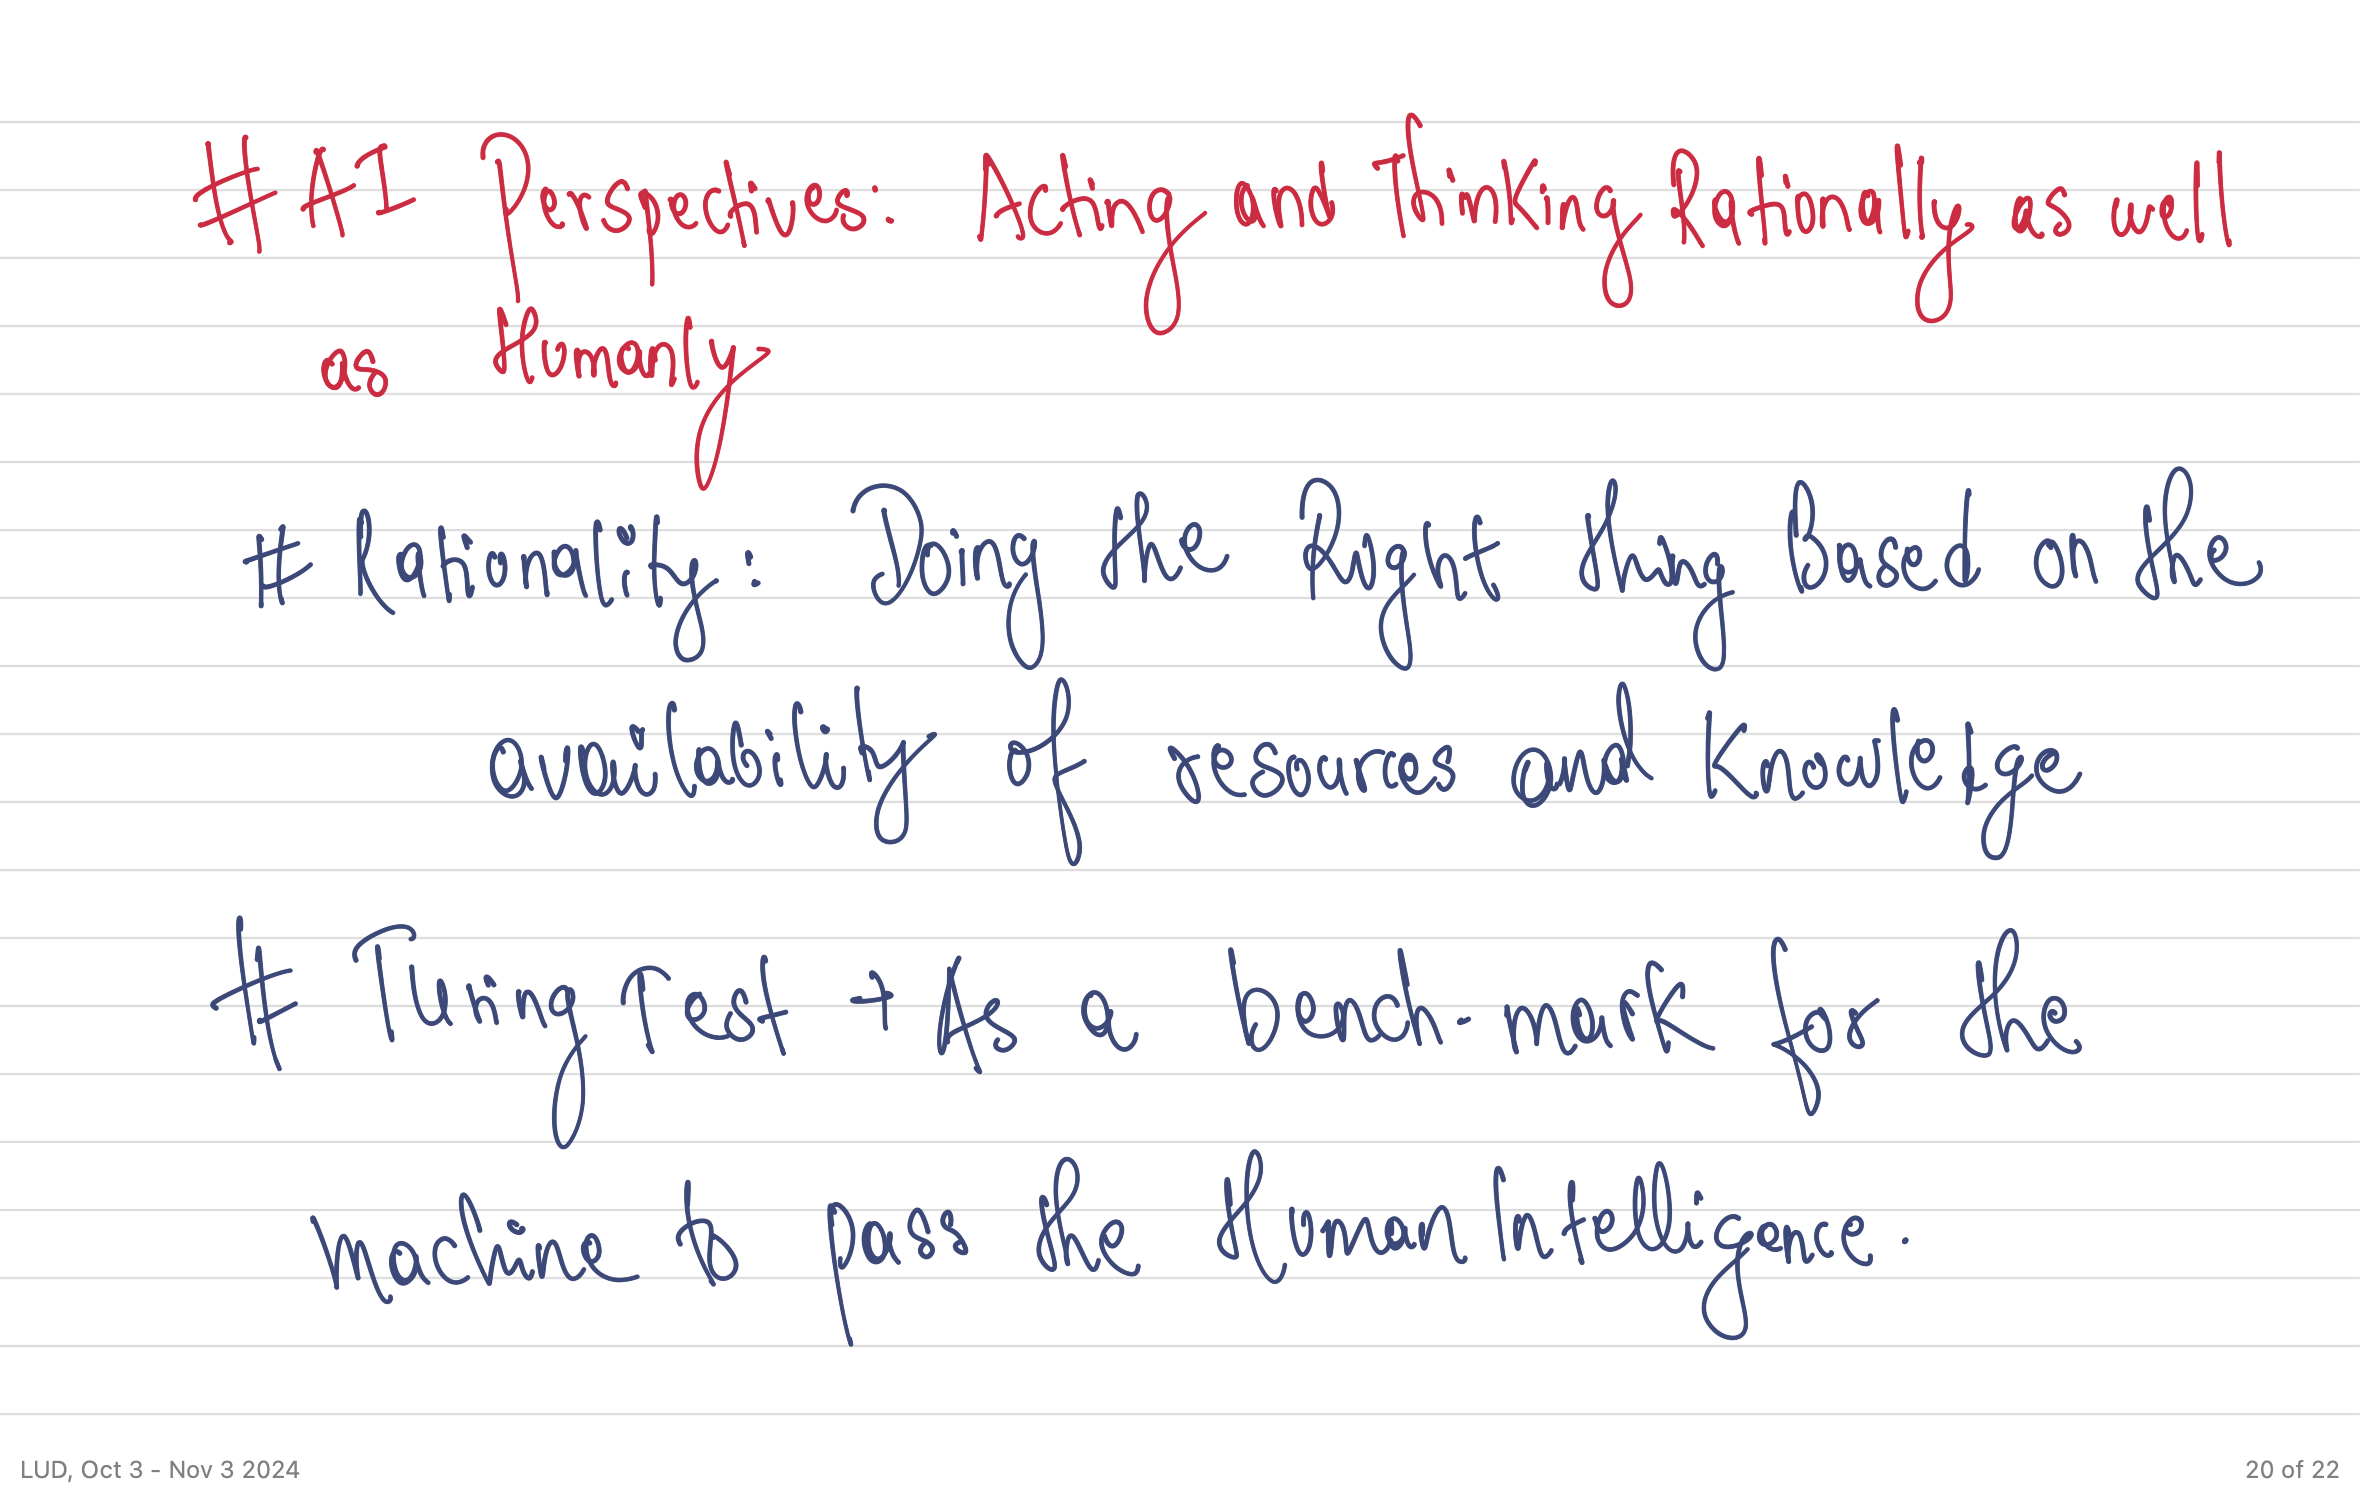 # AI Perspectives: Acting and Thinking Rationally as well
as Humanly
# Rationality: Doing the Right thing based on the
availability of resources and Knowledge
# Turing Test + As a bench-mark for the
machine to pass the Human Intelligence.
LUD, Oct 3 - Nov 3 2024
20 of 22